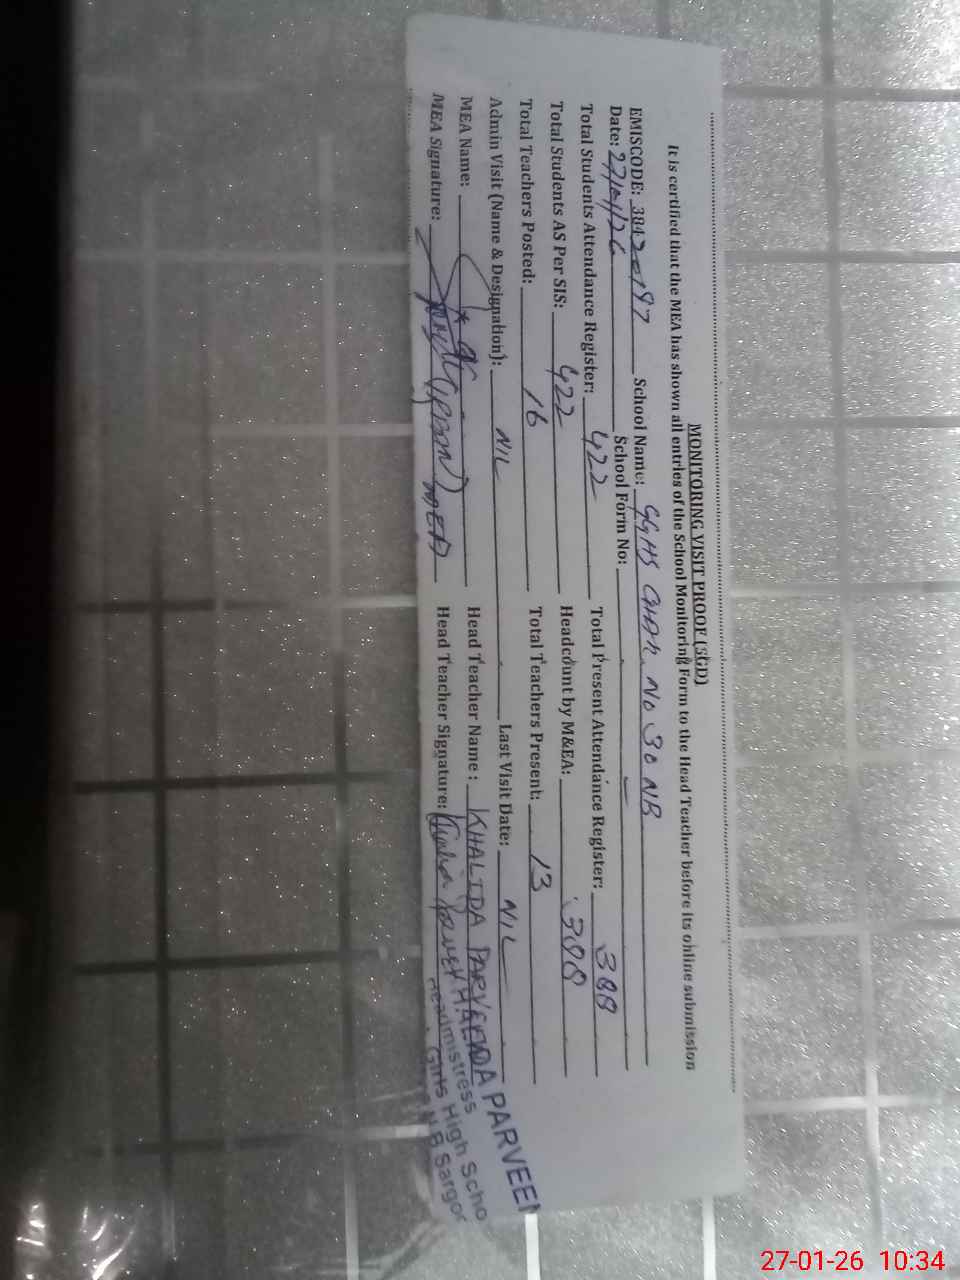 MONITORING VISIT PROOF (SGD)
It is certified that the MEA has shown all entries of the School Monitoring Form to the Head Teacher before its online submission
EMISCODE: 38420197 School Name: GGHS CHAK No 30 NB
Date: 27/01/26 School Form No: –
Total Students Attendance Register: 422 Total Present Attendance Register: 388
Total Students AS Per SIS: 422 Headcount by M&EA: 388
Total Teachers Posted: 16 Total Teachers Present: 13
Admin Visit (Name & Designation): NIL Last Visit Date: NIL
MEA Name: Head Teacher Name : KHALIDA PARVEEN
MEA Signature: MEA Head Teacher Signature:
KHALIDA PARVEEN
Headmistress
Girls High Scho
N B Sargo
27-01-26 10:34